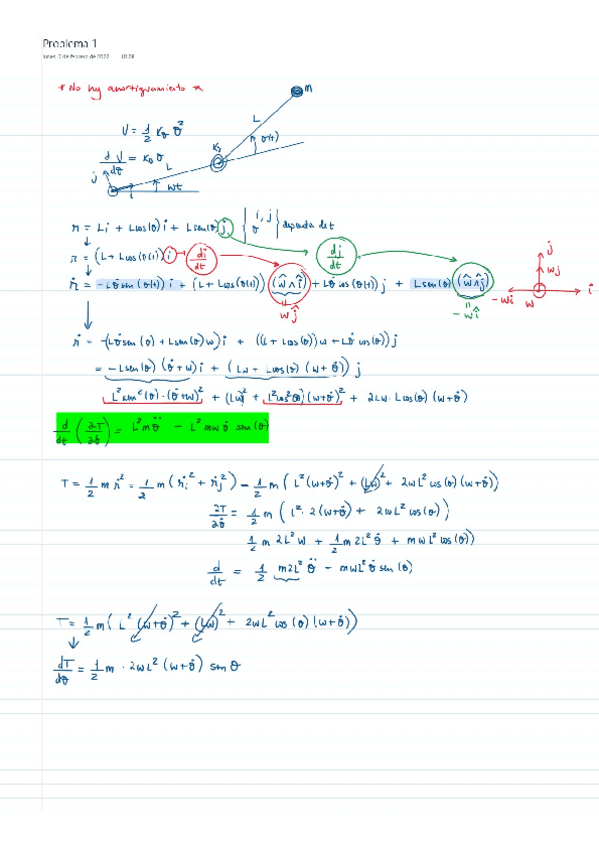 Problema 1
lunes, 7 de febrero de 2022 10:28
* No hay amortiguamiento *
m
L
V = 1/2 Kθ θ²
Kθ
θ(t)
dV/dθ = Kθ θ
L
j
i
wt
r = Li + Lcos(θ)i + Lsen(θ)j { i, j θ } depende de t
r = (L + Lcos(θ(t)))i → di/dt
dj/dt
ṙ = -Lθ̇ sen(θ(t))i + (L + Lcos(θ(t)))(ŵ∧î) + Lθ̇ cos(θ(t))j + Lsen(θ)(ŵ∧ĵ)
= wĵ
= -wî
j
wj
-wi w i
ṙ = -(Lθ̇ sen(θ) + Lsen(θ)w)i + ((L + Lcos(θ))w + Lθ̇ cos(θ))j
= -Lsen(θ)(θ̇+w)i + (Lw + Lcos(θ)(w+θ̇))j
L²sen²(θ)·(θ̇+w)² + (Lw)² + L²cos²(θ)(w+θ̇)² + 2Lw·Lcos(θ)(w+θ̇)
d/dt (∂T/∂θ̇) = L²mθ̈ - L²mwθ̇ sen(θ)
T = 1/2 m ṙ² = 1/2 m (ṙi² + ṙj²) = 1/2 m (L²(w+θ̇)² + (Lw)² + 2wL²cos(θ)(w+θ̇))
∂T/∂θ̇ = 1/2 m (L²·2(w+θ̇) + 2wL²cos(θ))
1/2 m 2L²w + 1/2 m 2L²θ̇ + mwL²cos(θ))
d/dt = 1/2 m2L² θ̈ - mwL²θ̇ sen(θ)
T = 1/2 m (L²(w+θ̇)² + (Lw)² + 2wL²cos(θ)(w+θ̇))
dT/dθ = 1/2 m · 2wL²(w+θ̇) sen θ